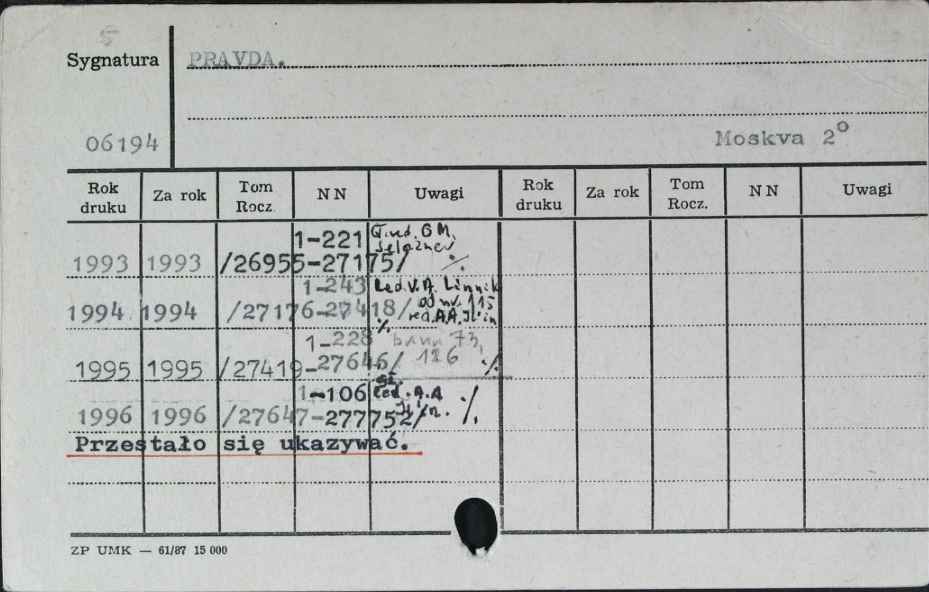 5
Sygnatura PRAVDA.
06194 Moskva 2°
Rok druku Za rok Tom Rocz. N N Uwagi Rok druku Za rok Tom Rocz. N N Uwagi
1-221 G.red. G M.
Selezner
1993 1993 /26955-27175/ ·/.
1-243 Red.V.A. Linnik
1994 1994 /27176-27418/ od nr. 115
red.AA.Il'in
·/.
1-228 73,
1995 1995 /27419-27646/ 126 ·/.
gł.
1-106 Red. A.A ·/.
1996 1996 /27647-277752/ Il'in.
Przestało się ukazywać.
ZP UMK — 61/87 15 000